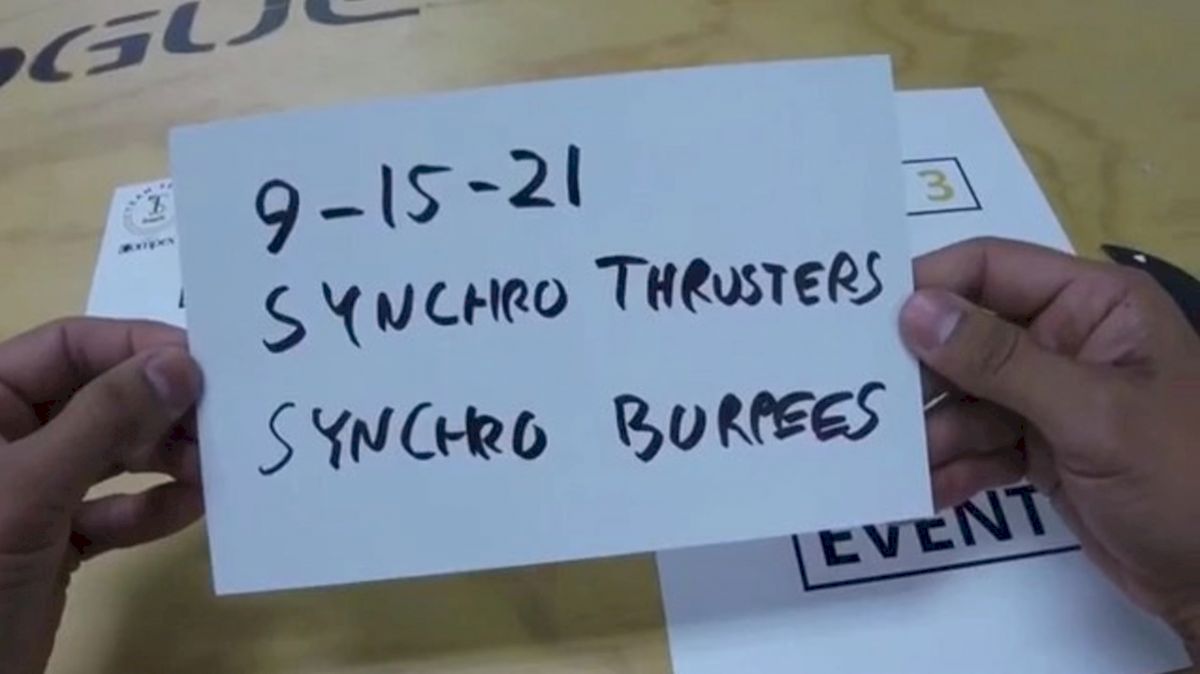 OGUE
9-15-21
SYNCHRO THRUSTERS
SYNCHRO BURPEES
3
EVENT